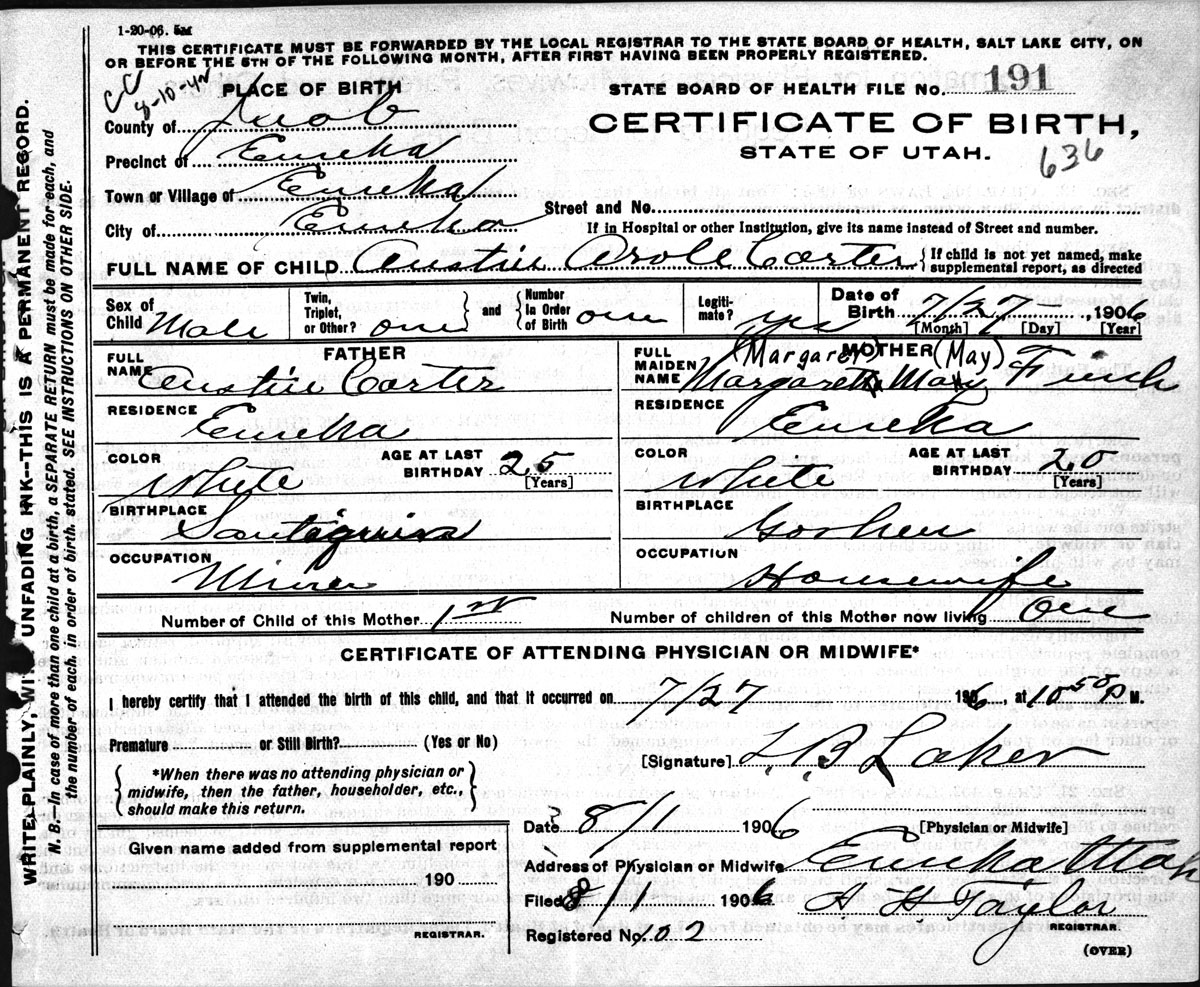 1-20-06. 5M
THIS CERTIFICATE MUST BE FORWARDED BY THE LOCAL REGISTRAR TO THE STATE BOARD OF HEALTH, SALT LAKE CITY, ON
OR BEFORE THE 5TH OF THE FOLLOWING MONTH, AFTER FIRST HAVING BEEN PROPERLY REGISTERED.
CC
8-10-42
PLACE OF BIRTH
STATE BOARD OF HEALTH FILE No. 191
County of Juab
CERTIFICATE OF BIRTH,
STATE OF UTAH.
636
Precinct of Eureka
Town or Village of Eureka
Street and No.
City of Eureka
If in Hospital or other Institution, give its name instead of Street and number.
FULL NAME OF CHILD Austin Arole Carter { If child is not yet named, make supplemental report, as directed
Sex of Child Male
Twin, Triplet, or Other? one } and { Number in Order of Birth one
Legitimate? yes
Date of Birth 7/27, 1906
[Month] [Day] [Year]
FATHER
FULL NAME Austin Carter
RESIDENCE Eureka
COLOR White
AGE AT LAST BIRTHDAY 25 [Years]
BIRTHPLACE Santaquin
OCCUPATION Miner
MOTHER
(Margaret) (May)
FULL MAIDEN NAME Margarett May Finch
RESIDENCE Eureka
COLOR White
AGE AT LAST BIRTHDAY 20 [Years]
BIRTHPLACE Goshen
OCCUPATION Housewife
Number of Child of this Mother 1st
Number of children of this Mother now living One
CERTIFICATE OF ATTENDING PHYSICIAN OR MIDWIFE*
I hereby certify that I attended the birth of this child, and that it occurred on 7/27 1906, at 10 50 P M.
Premature or Still Birth? (Yes or No)
[Signature] L. B. Laker
*When there was no attending physician or
midwife, then the father, householder, etc.,
should make this return.
Date 8/1 1906
[Physician or Midwife]
Given name added from supplemental report
190
REGISTRAR.
Address of Physician or Midwife Eureka Utah
Filed 8/1 1906 A H Taylor
REGISTRAR.
Registered No. 102
(OVER)
WRITE PLAINLY, WITH UNFADING INK--THIS IS A PERMANENT RECORD.
N. B.--In case of more than one child at a birth, a SEPARATE RETURN must be made for each, and
the number of each, in order of birth, stated. SEE INSTRUCTIONS ON OTHER SIDE.